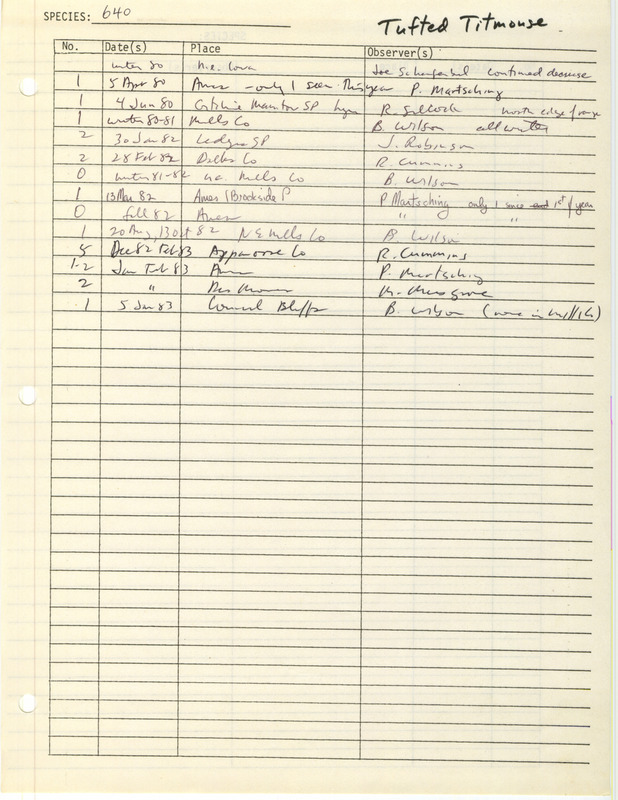 SPECIES: 640
Tufted Titmouse
No. Date(s) Place Observer(s)
winter 80 n.e. Iowa Joe Schaufenbuel continued decrease
1 5 Apr 80 Ames - only 1 seen this year P. Martsching
1 4 Jun 80 Gitchie Manitou SP Lyon R. Silcock north edge of range
1 winter 80-81 Mills Co B. Wilson all winter
2 30 Jan 82 Ledges SP J. Robinson
2 28 Feb 82 Dallas Co R. Cummins
0 winter 81-82 Mills Co B. Wilson
1 13 Mar 82 Ames (Brookside P P Martsching only 1 since 1st of year
0 fall 82 Ames " "
1 20 Aug, 13 Oct 82 N E Mills Co B. Wilson
5 Dec 82 Feb 83 Appanoose Co R. Cummins
1-2 Jan Feb 83 Ames P. Martsching
2 " Des Moines M. Musgrove
1 5 Jan 83 Council Bluffs B. Wilson (none in Mills)